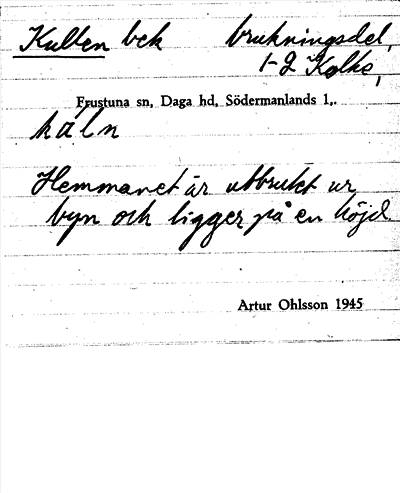 Kullen bek brukningsdel,
1-2 Kolke,
Frustuna sn, Daga hd, Södermanlands l,.
käln
Hemmanet är utbrutet ur
byn och ligger på en höjd
Artur Ohlsson 1945